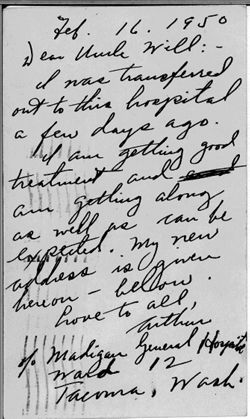 Feb. 16. 1950
Dear Uncle Will:-
I was transferred
out to this hospital
a few days ago.
I am getting good
treatment and
am getting along
as well as can be
expected. My new
address is given
hereon - below
Love to all,
Arthur
c/o Madigan General Hospital
Ward 12
Tacoma, Wash.